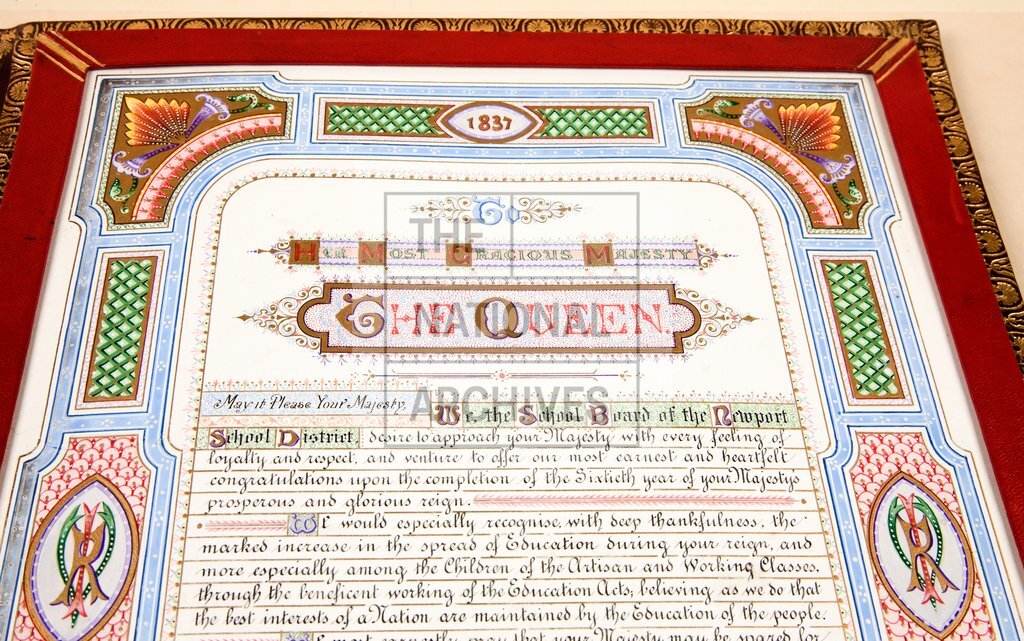 1837
To
Her Most Gracious Majesty
The Queen.
May it Please Your Majesty,
We, the School Board of the Newport
School District, desire to approach your Majesty with every feeling of
loyalty and respect, and venture to offer our most earnest and heartfelt
congratulations upon the completion of the Sixtieth year of your Majesty's
prosperous and glorious reign.
We would especially recognise, with deep thankfulness, the
marked increase in the spread of Education during your reign, and
more especially among the Children of the Artisan and Working Classes,
through the beneficent working of the Education Acts; believing as we do that
the best interests of a Nation are maintained by the Education of the people.
We most earnestly pray that your Majesty may be spared for
THE
NATIONAL
ARCHIVES